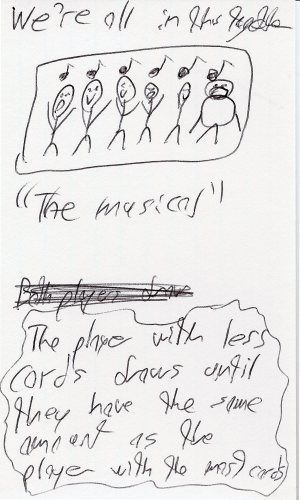 We're all in this together
"The musical"
Both players draw
The player with less
cards draws until
they have the same
amount as the
player with the most cards